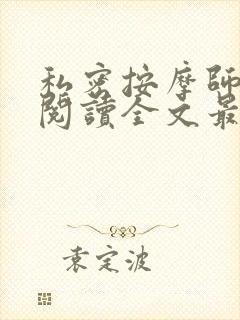 私密按摩師
閱讀全文最
袁定波